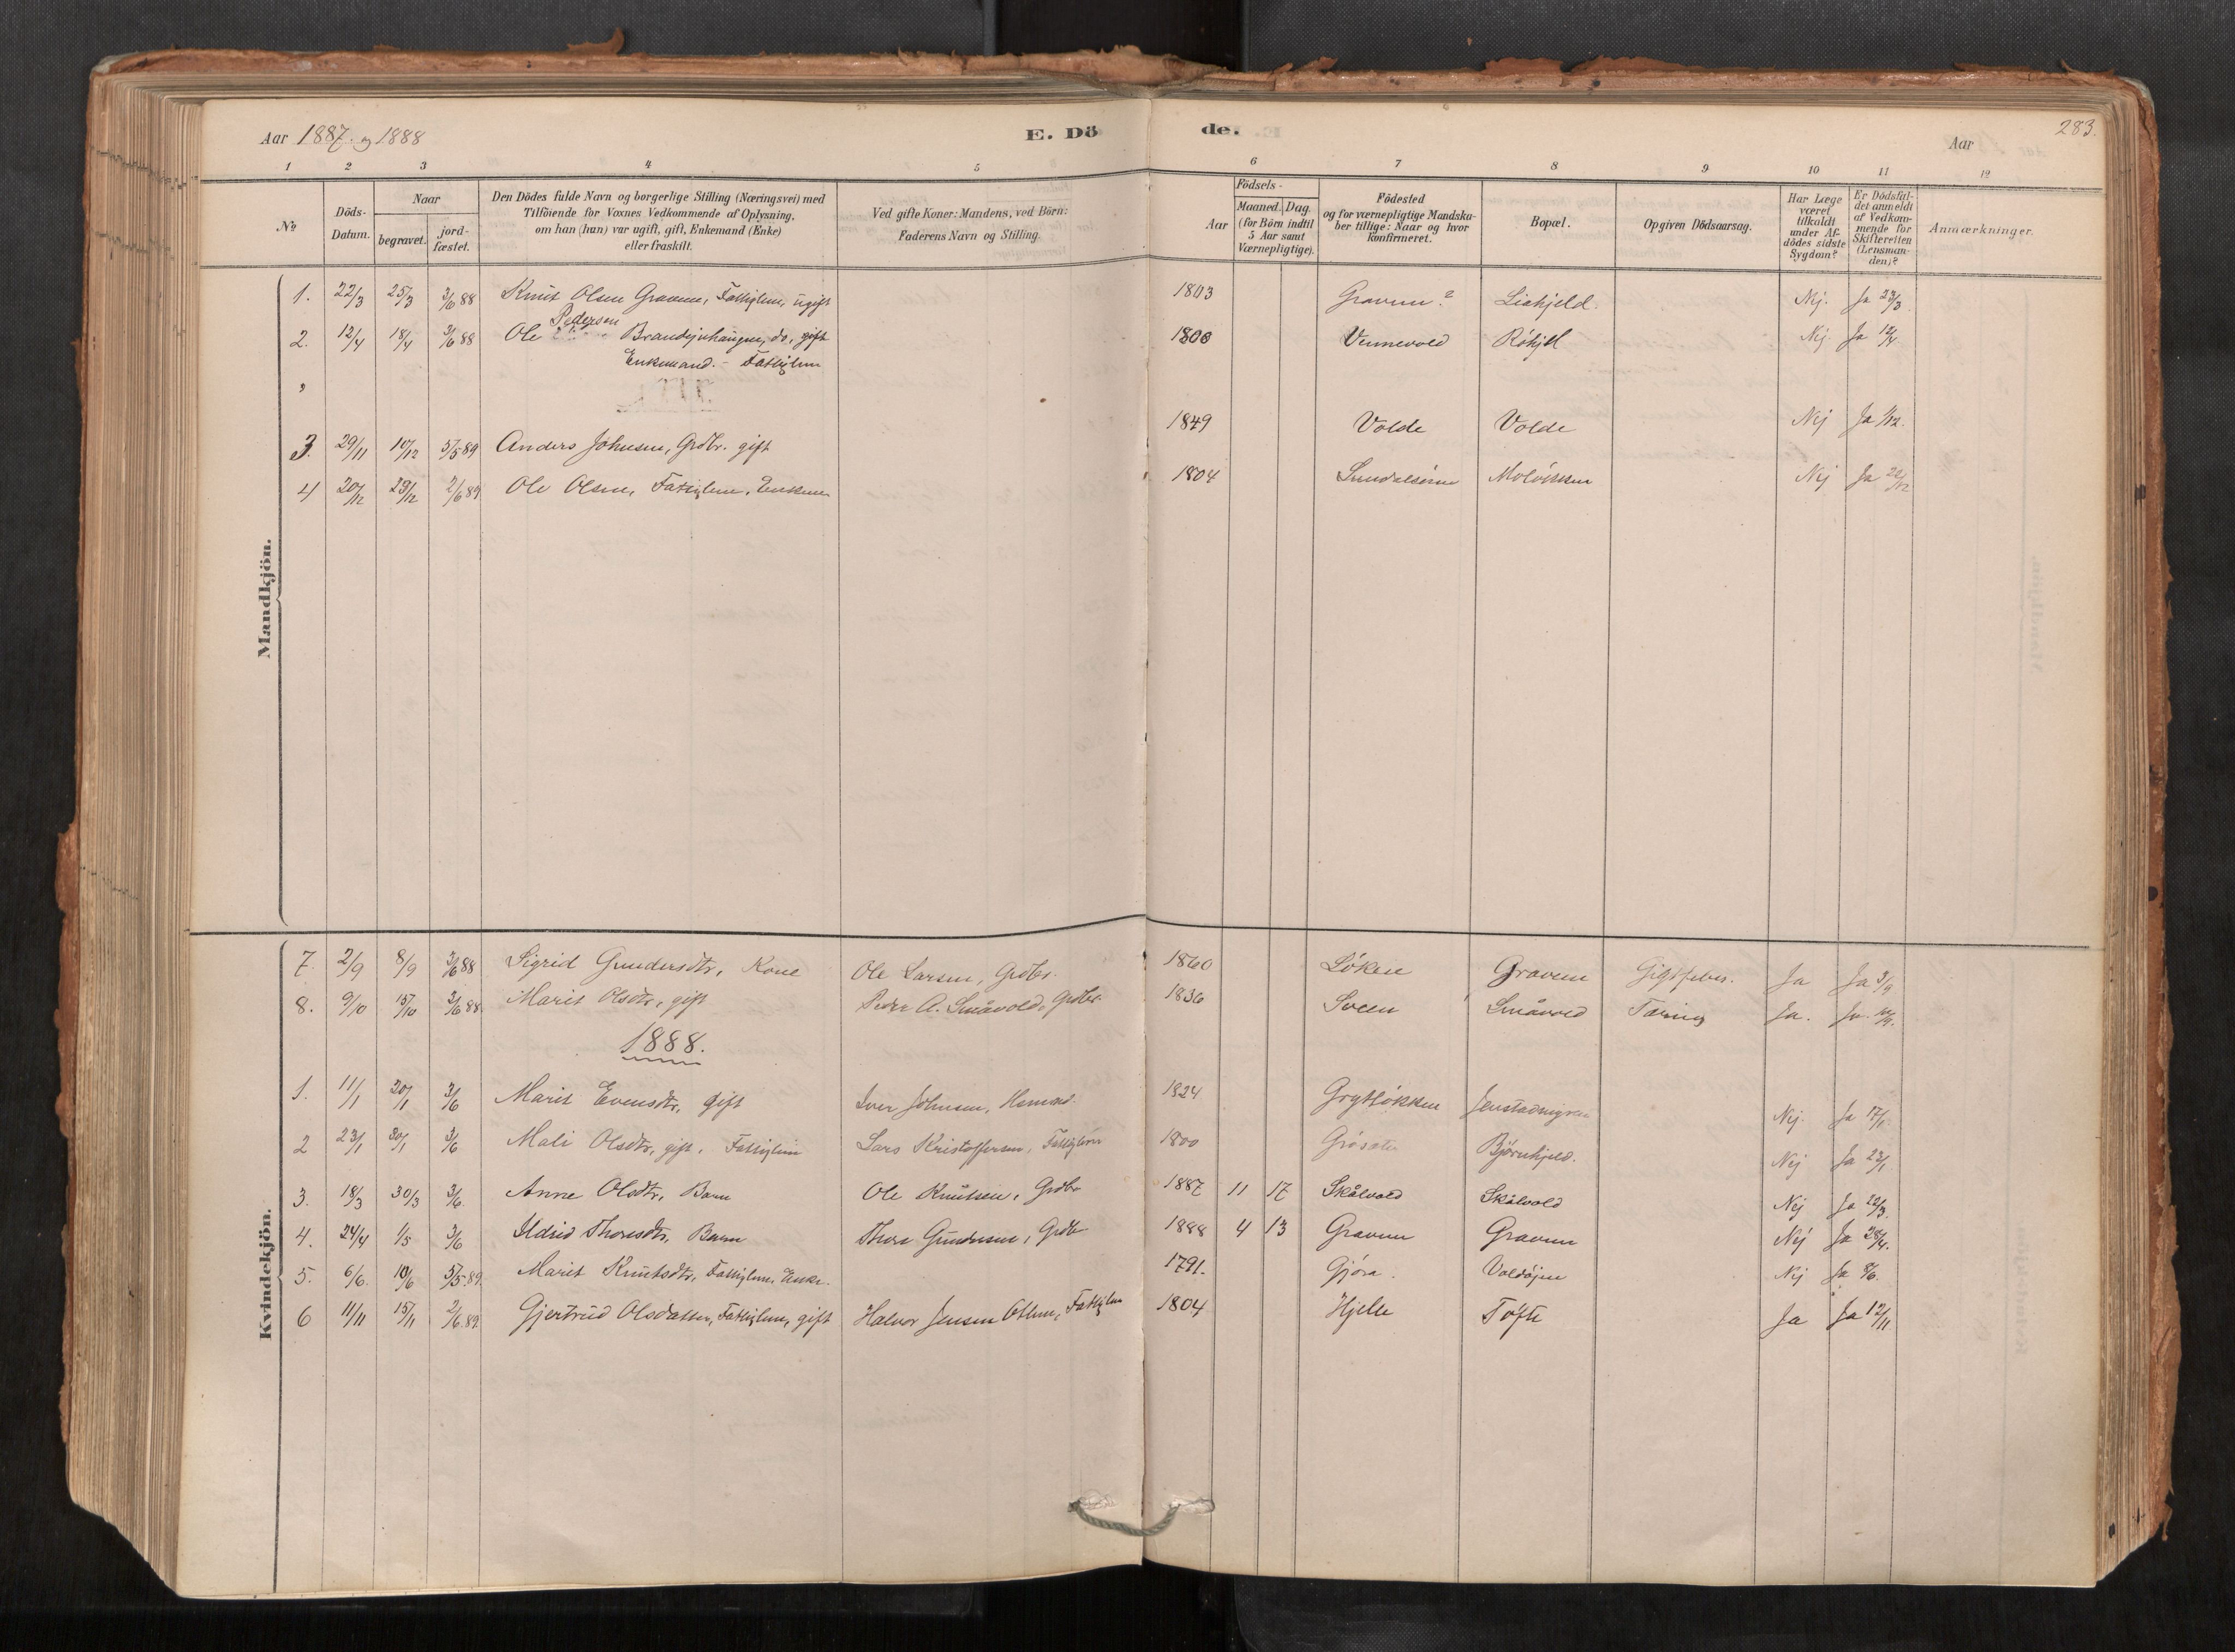 Aar 1887. og 1888
E. Dö
de.
Aar
283.
1 2 3 4 5 6 7 8 9 10 11 12
No
Döds-Datum.
Naar
begravet.
jord-fæstet.
Den Dödes fulde Navn og borgerlige Stilling (Næringsvei) med
Tilföiende for Voxnes Vedkommende af Oplysning,
om han (hun) var ugift, gift, Enkemand (Enke)
eller fraskilt.
Ved gifte Koner: Mandens, ved Börn:
Faderens Navn og Stilling.
Födsels-
Aar
Maaned. Dag.
(for Börn indtil
5 Aar samt
Værnepligtige).
Födested
og for værnepligtige Mandska-
ber tillige: Naar og hvor
konfirmeret.
Bopæl.
Opgiven Dödsaarsag.
Har Læge
været
tilkaldt
under Af-
dödes sidste
Sygdom?
Er Dödsfal-
det anmeldt
af Vedkom-
mende for
Skifteretten
(Lensman-
den)?
Anmærkninger.
Mandkjön.
1. 22/3 25/3 3/6 88 Knut Olsen Gravem, Fattiglem, ugift 1803 Gravem? Liahjeld. Nej. Ja 23/3
Pedersen
2. 12/4 18/4 3/6 88 Ole Brandsjuhaugen, do, gift 1800 Vennevold Röhjel Nej. Ja 12/4
Enkemand. - Fattiglem
3. 29/11 10/12 5/5 89 Anders Johnsen, Grdbr. gift 1849 Volde Volde Nej Ja 1/12.
4 20/12 29/12 2/6 89 Ole Olsen, Fattiglem, Enkem 1804 Sundalsören Molökken Nej Ja 22/12
Kvindekjön.
7. 2/9 8/9 3/6 88 Sigrid Gundersdtr, Kone Ole Larsen, Grdbr. 1860 Löken Gravem Gigtfeber. Ja Ja 3/9
8. 9/10 15/10 3/6 88 Marit Olsdtr, gift Peder A. Småvold, Grdbr. 1836 Sveen Småvold Tæring Ja. Ja.
1888.
1. 11/1 20/1 3/6 Marit Evensdtr, gift Iver Johnsen, Hsmand. 1824 Grytlökken Jenstadmyren Nej. Ja 17/1
2 23/1 30/1 3/6 Mali Olsdtr, gift, Fattiglem Lars Kristoffersen, Fattiglem 1800 Gröseter Björnhjeld. Nej Ja 23/1
3. 18/3 30/3 3/6. Anne Olsdtr, Barn Ole Knutsen, Grdbr 1887 11 17 Skålvold Skålvold Nej Ja 22/3.
4. 24/4 1/5 3/6 Ildrid Thoresdtr, Barn Thore Gundersen, Grdbr 1888 4 13 Gravem Gravem Nej Ja 28/4.
5. 6/6. 10/6 5/5.89. Marit Knutsdtr, Fattiglem, Enke. 1791. Gjöra. Voldöjen Nej Ja 8/6.
6 11/11 15/11 2/6.89. Gjertrud Olsdatter, Fattiglem, gift Halvor Jensen Ottem, Fattiglem 1804 Hjelle Töfte Ja Ja 12/11